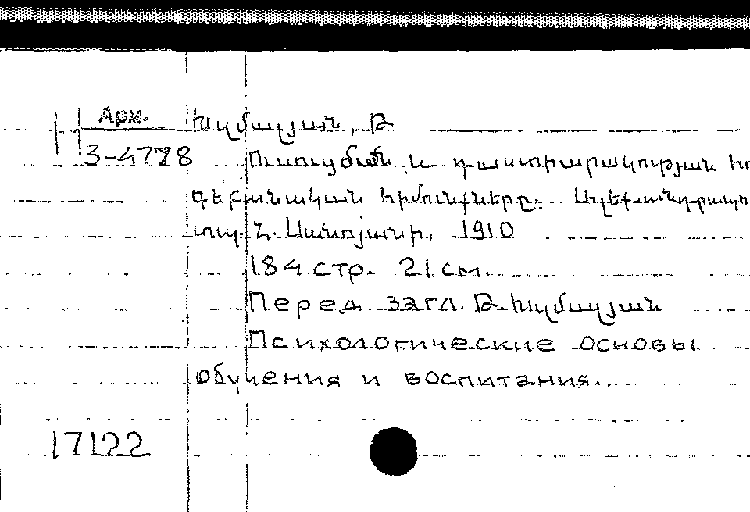 Арм.
Խզմալյան, Թ
3-4728
Ուսուցման և դաստիարակության հո
գեբանական հիմունքները. Ալեքսանդրապոլ
տպ. Հ. Սանոյանի, 1910
184 стр. 21 см
Перед загл. Թ. Խզմալյան
Психологические основы
обучения и воспитания.
17122